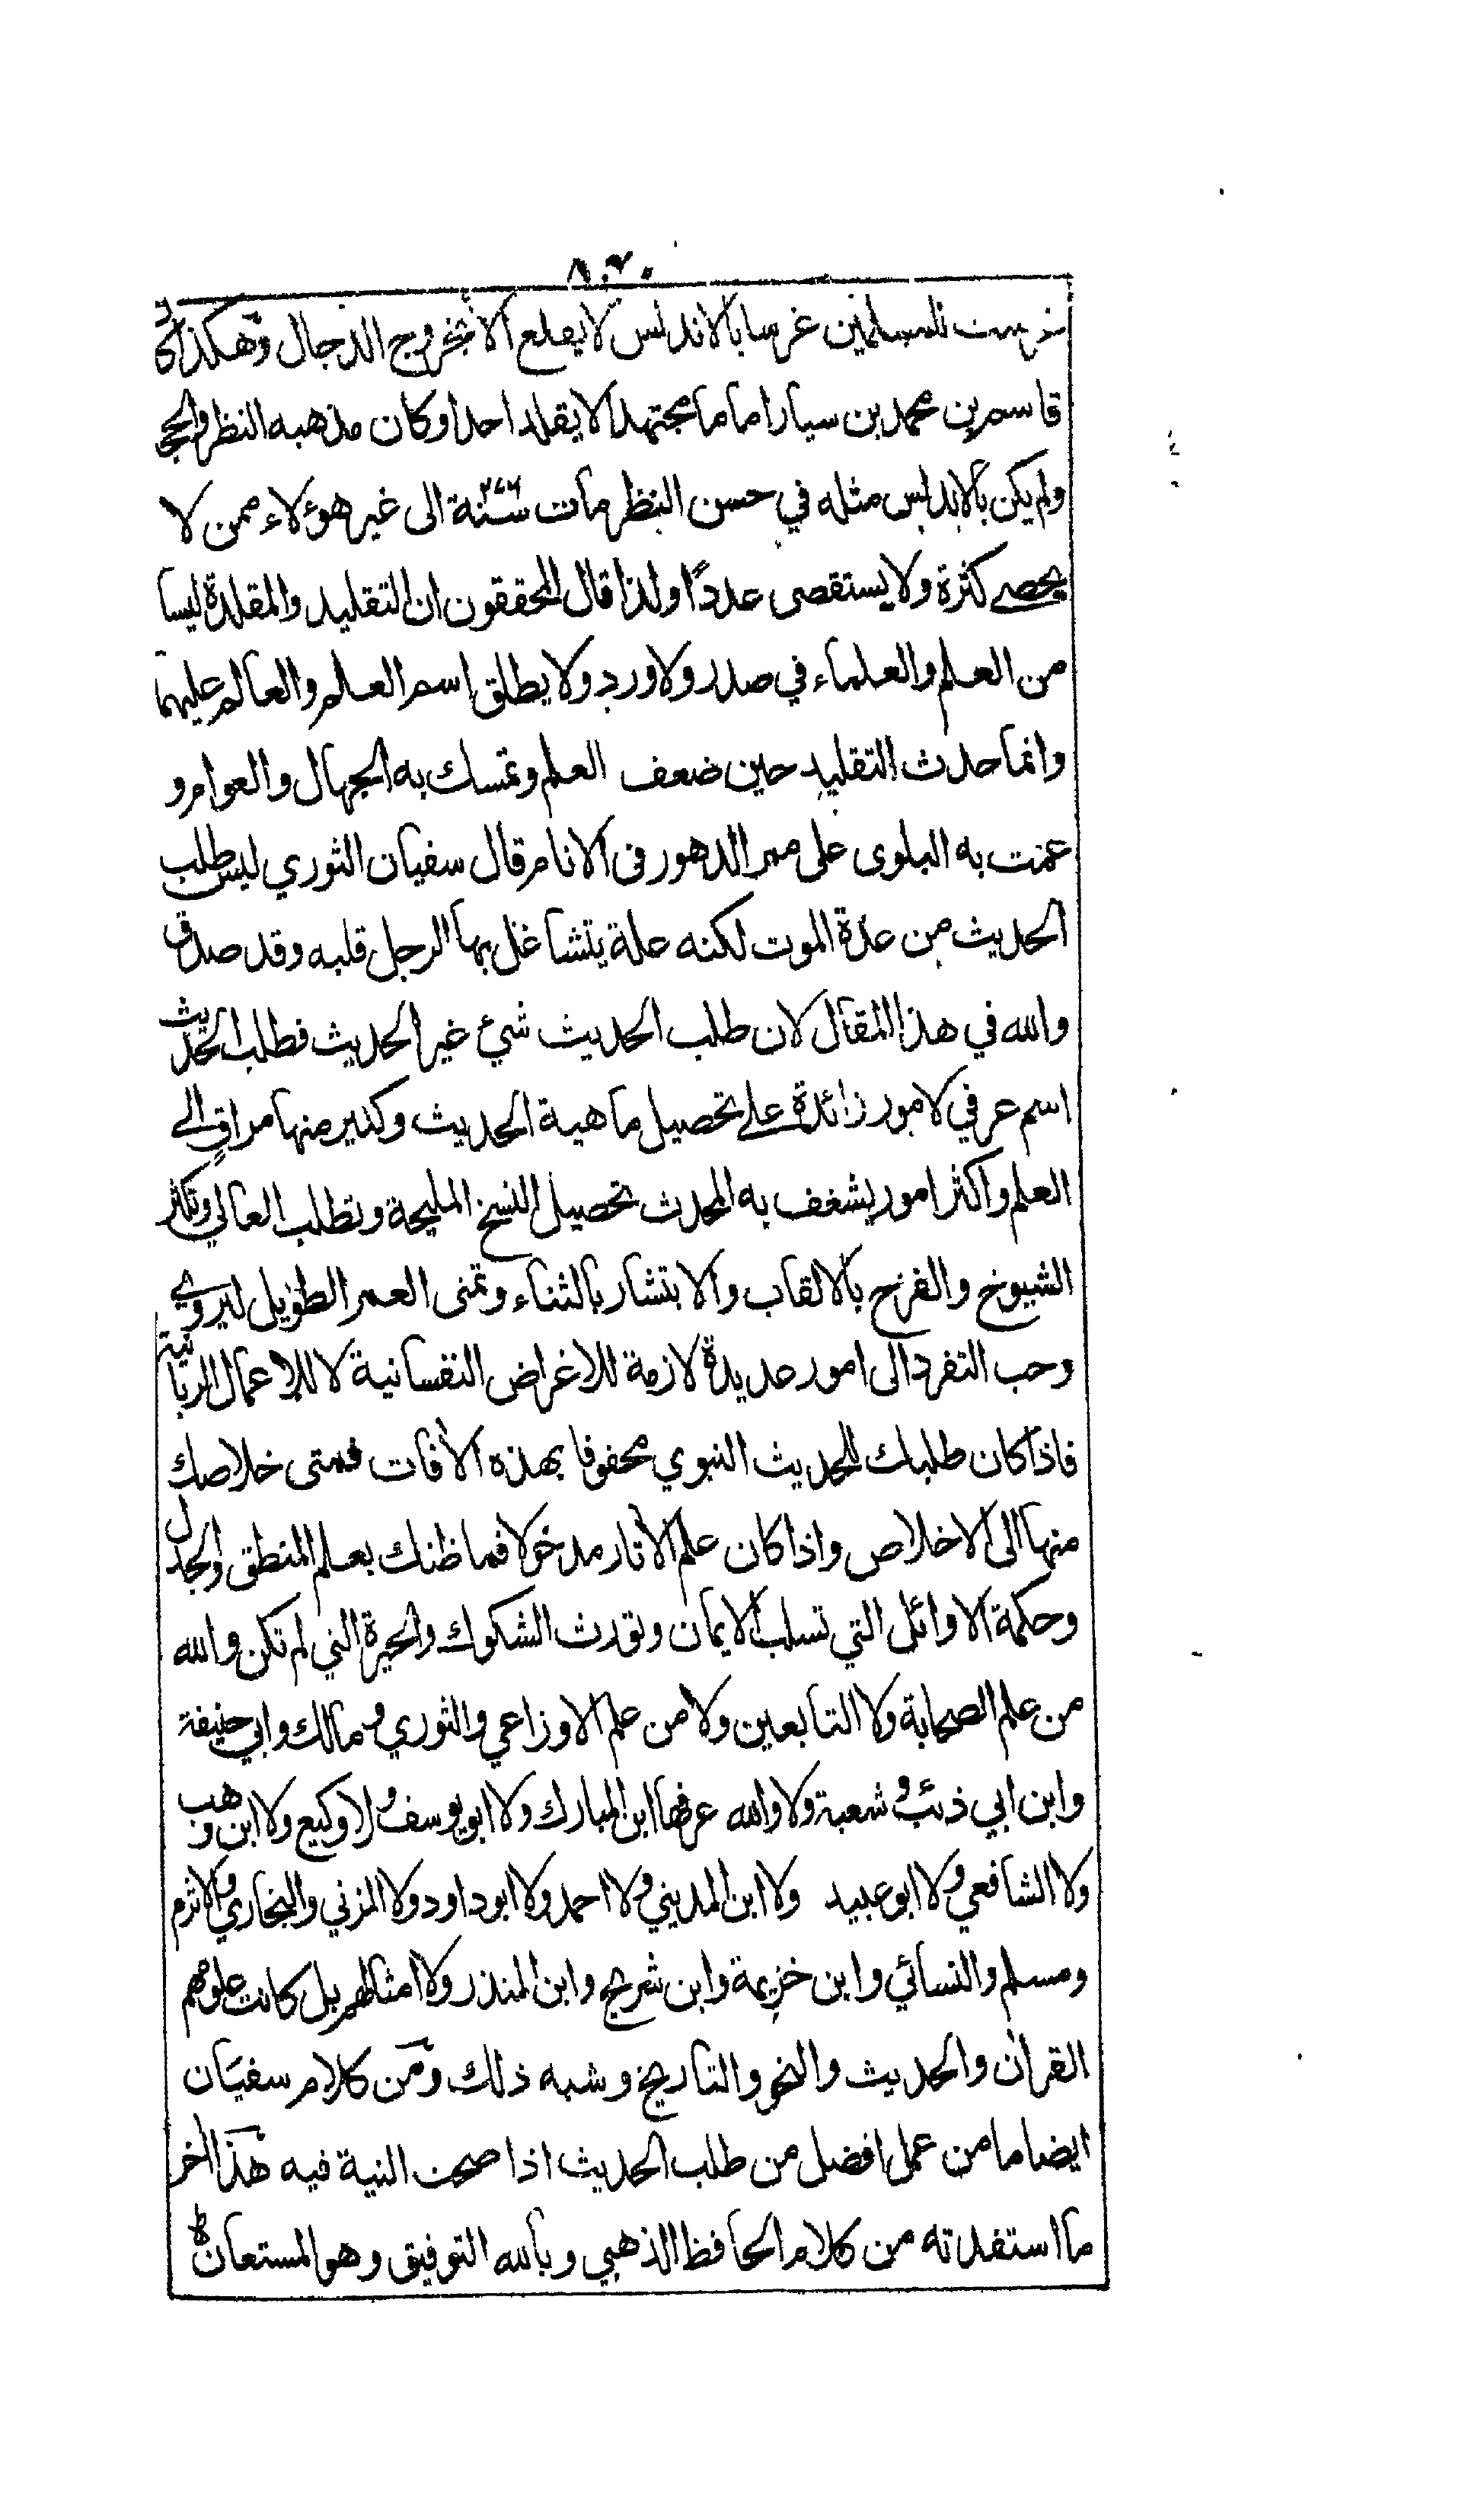 غرست للمسلمين غرسا بالاندلس لا يقلع الا بخروج الدجال وهكذا كان
قاسم بن محمد بن سيار اماما مجتهدا لا يقلد احدا وكان مذهبه النظر والحجج
ولم يكن بالاندلس مثله في حسن النظر مات سنة ٢٧٦ الى غير هؤلاء ممن لا
يحصى كثرة ولا يستقصى عددًا ولذا قال المحققون ان التقليد والمقلدة ليسا
من العلم والعلماء في صدر ولا ورد ولا يطلق اسم العلم والعالم عليهما
وانما حدث التقليد حين ضعف العلم وتمسك به الجهال والعوام و
عمت به البلوى على ممر الدهور فى الانام قال سفيان الثوري ليس طلب
الحديث من عدة الموت لكنه علة يتشاغل بها الرجل قلبه وقد صدق
والله في هذا المقال لان طلب الحديث شيء غير الحديث فطلب الحديث
اسم عرفي لامور زائدة على تحصيل ماهية الحديث وكثير منها مراقٍ الى
العلم واكثر امور يشغف به المحدث تحصيل النسخ المليحة وتطلب العالي وتكاثر
الشيوخ والفرح بالالقاب والابتشار بالثناء وتمنى العمر الطويل ليروي
وحب التفرد الى امور عديدة لازمة للاغراض النفسانية لا للاعمال الربانية
فاذا كان طلبك للحديث النبوي محفوفا بهذه الافات فمتى خلاصك
منها الى الاخلاص واذا كان علم الاثار مدخولا فما ظنك بعلم المنطق والجدل
وحكمة الاوائل التي تسلب الايمان وتورث الشكوك والحيرة التي لم تكن والله
من علم الصحابة ولا التابعين ولا من علم الاوزاعي والثوري ومالك وابي حنيفة
وابن ابي ذئب وشعبة ولا والله عرفها ابن المبارك ولا ابو يوسف ولا وكيع ولا ابن وهب
ولا الشافعي ولا ابو عبيد ولا ابن المديني ولا احمد ولا ابو داود ولا المزني والبخاري والاثرم
ومسلم والنسائي وابن خزيمة وابن شريح وابن المنذر ولا امثالهم بل كانت علومهم
القران والحديث والنحو والتاريخ وشبه ذلك ومن كلام سفيان
ايضا ما من عمل افضل من طلب الحديث اذا صحت النية فيه هذا اخر
ما استفدته من كلام الحافظ الذهبي وبالله التوفيق وهو المستعان